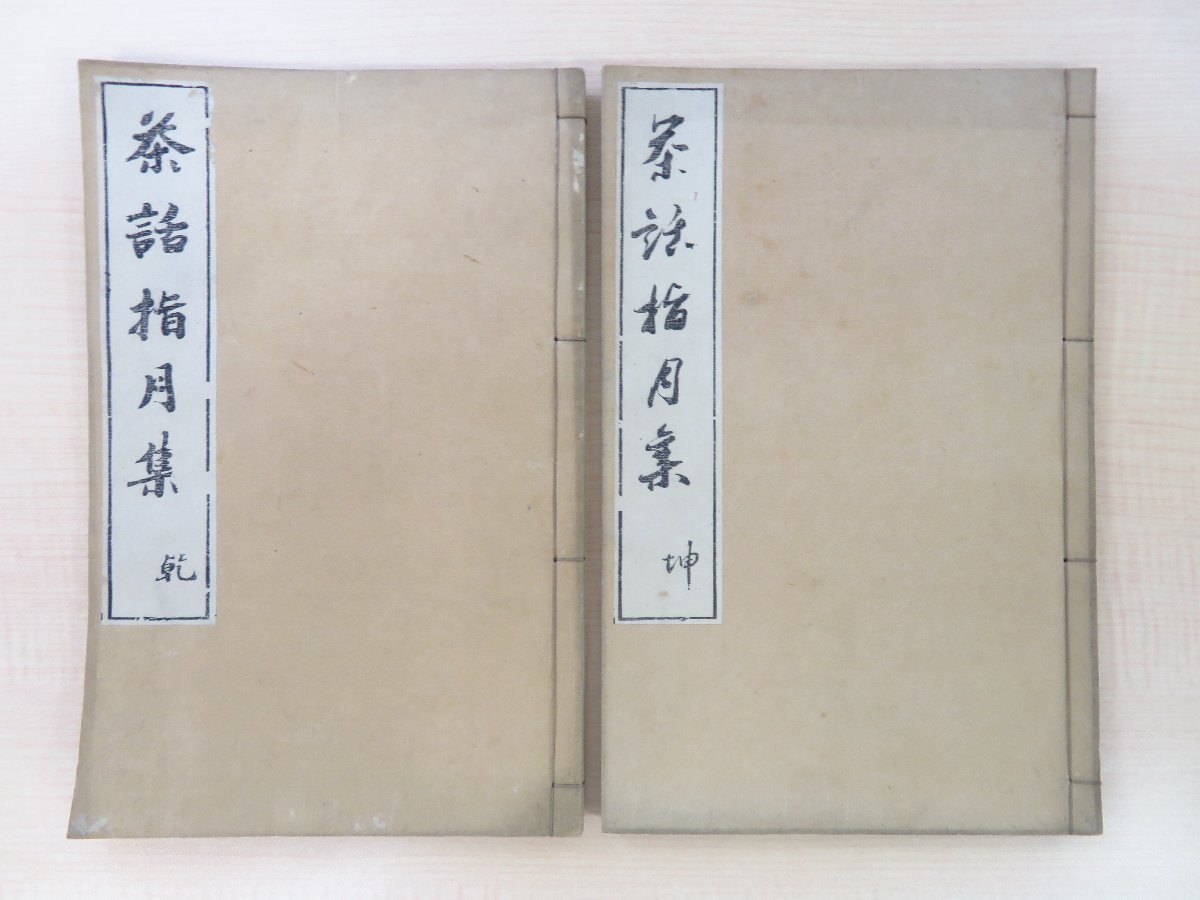 茶話指月集
乾
茶話指月集
坤